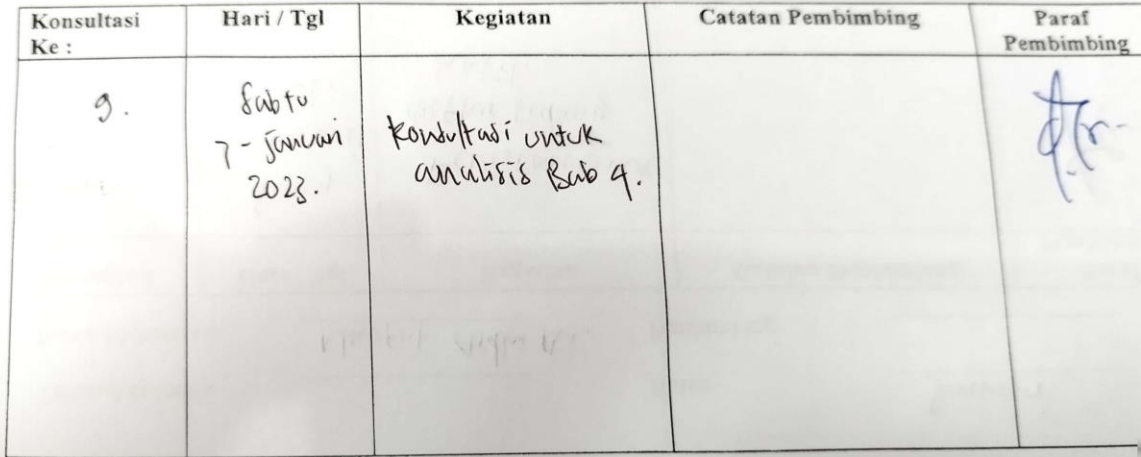 Konsultasi Ke :
Hari / Tgl
Kegiatan
Catatan Pembimbing
Paraf Pembimbing
9.
Sabtu
7 - Januari
2023.
Konsultasi untuk
analisis Bab 4.